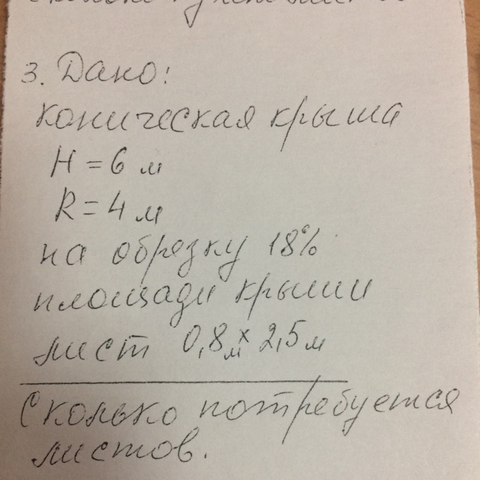 3. Дано:
коническая крыша
H = 6 м
R = 4 м
на обрезку 18%
площади крыши
лист 0,8м x 2,5м
Сколько потребуется
листов.